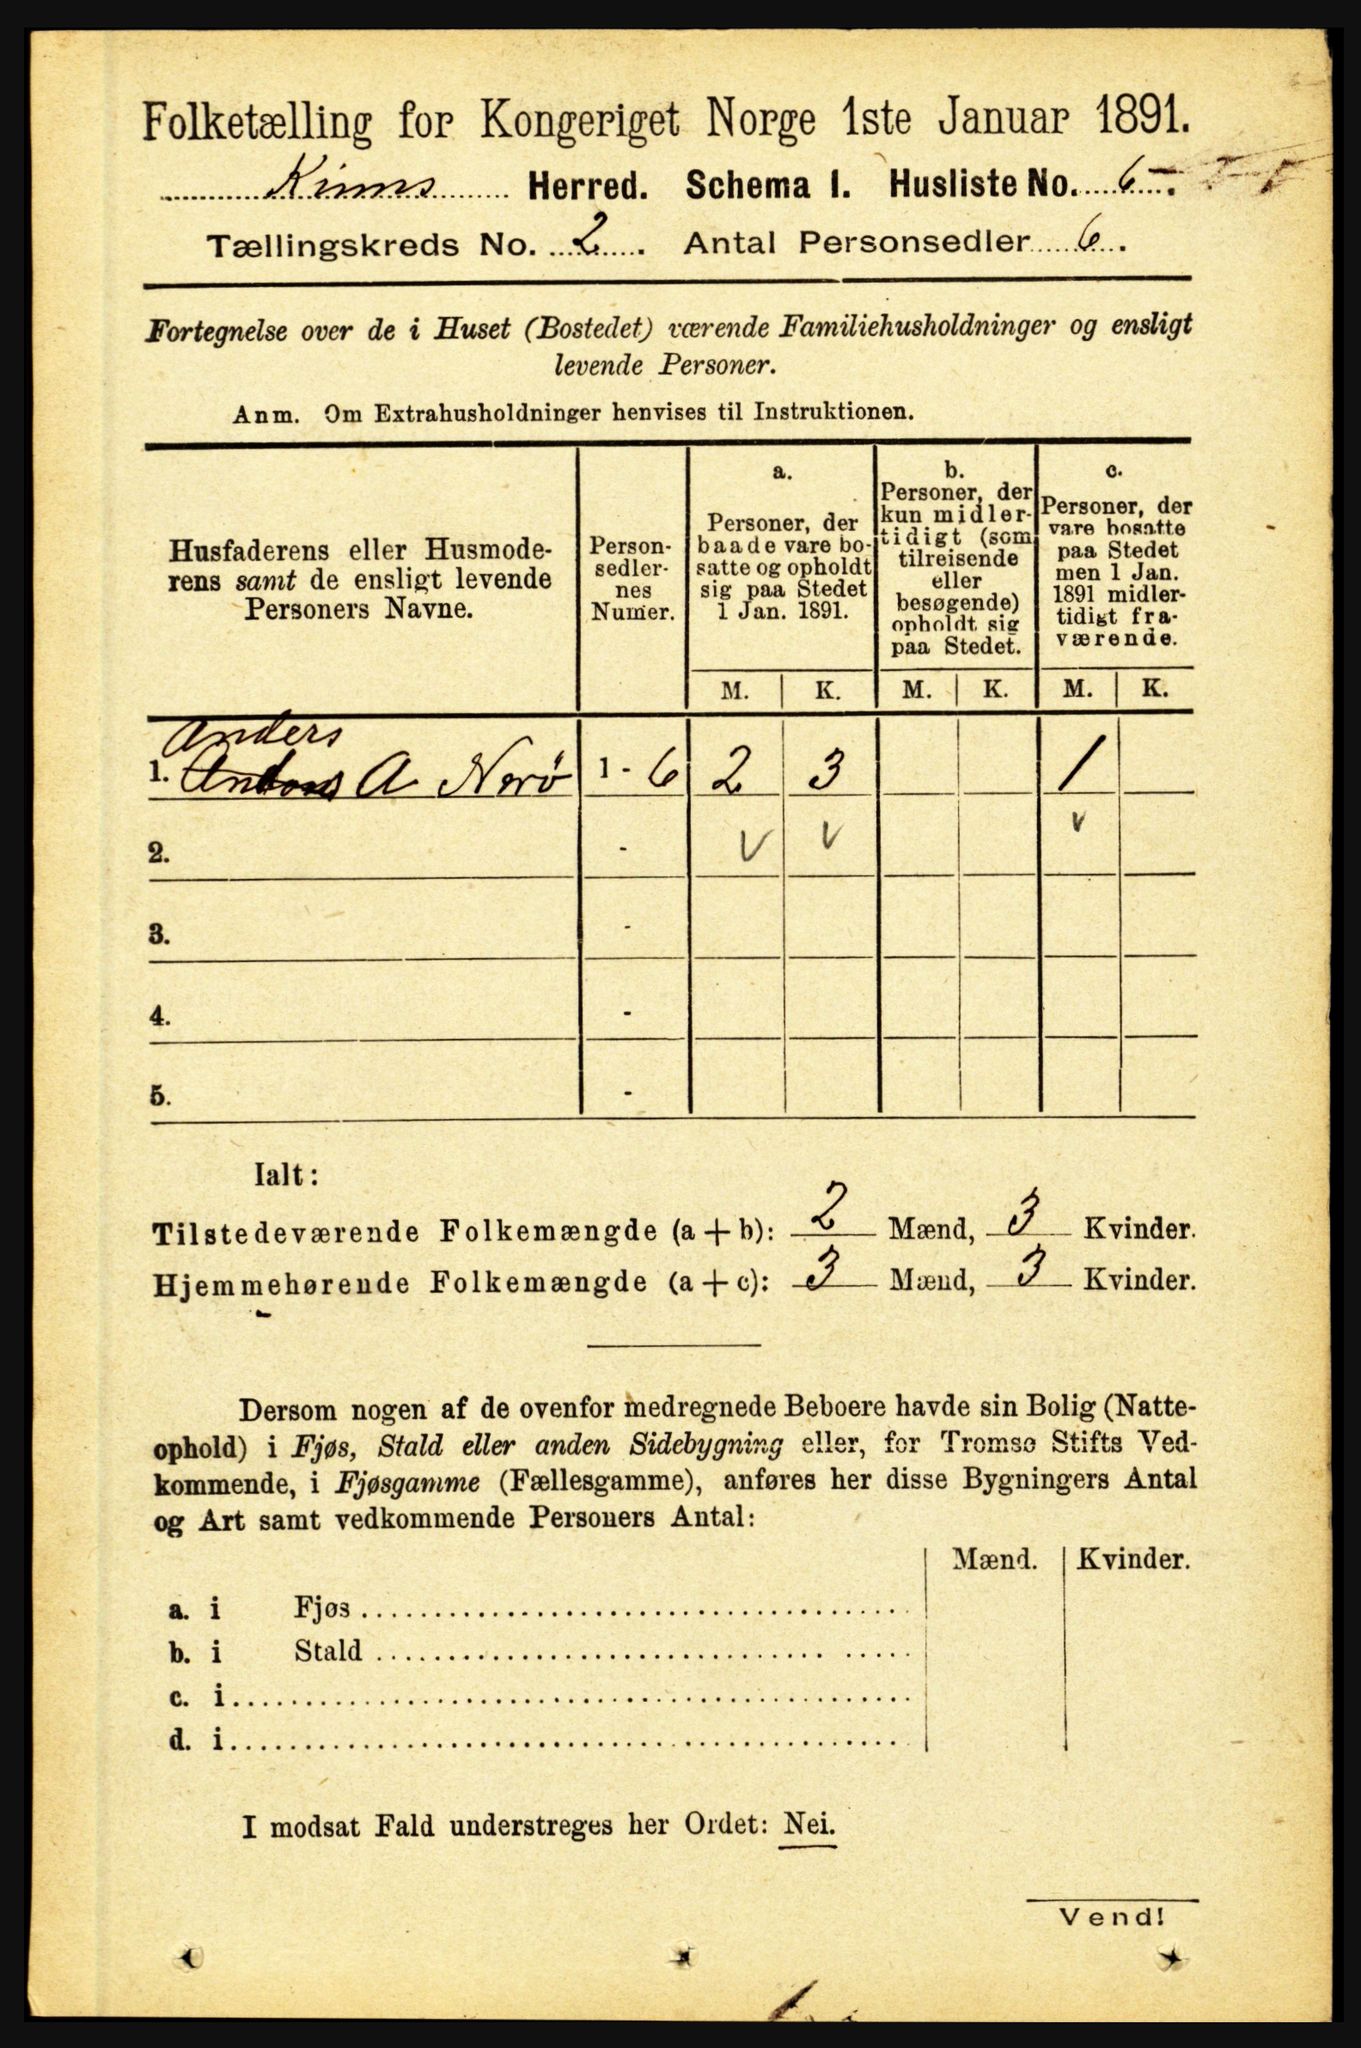 Folketælling for Kongeriget Norge 1ste Januar 1891.
Kinns Herred. Schema 1. Husliste No. 6.
Tællingskreds No. 2. Antal Personsedler 6.
Fortegnelse over de i Huset (Bostedet) værende Familiehusholdninger og ensligt
levende Personer.
Anm. Om Extrahusholdninger henvises til Instruktionen.
Husfaderens eller Husmode-
rens samt de ensligt levende
Personers Navne.
Person-
sedler-
nes
Numer.
a.
Personer, der
baade vare bo-
satte og opholdt
sig paa Stedet
1 Jan. 1891.
b.
Personer, der
kun midler-
tidigt (som
tilreisende
eller
besøgende)
opholdt sig
paa Stedet.
c.
Personer, der
vare bosatte
paa Stedet
men 1 Jan.
1891 midler-
tidigt fra-
værende.
M. K. M. K. M. K.
Anders
1. A Nerö 1 - 6 2 3 1
2. - v v v
3. -
4. -
5. -
Ialt:
Tilstedeværende Folkemængde (a + b): 2 Mænd, 3 Kvinder.
Hjemmehørende Folkemængde (a + c): 3 Mænd, 3 Kvinder.
Dersom nogen af de ovenfor medregnede Beboere havde sin Bolig (Natte-
ophold) i Fjøs, Stald eller anden Sidebygning eller, for Tromsø Stifts Ved-
kommende, i Fjøsgamme (Fællesgamme), anføres her disse Bygningers Antal
og Art samt vedkommende Personers Antal:
Mænd. Kvinder.
a. i Fjøs
b. i Stald
c. i
d. i
I modsat Fald understreges her Ordet: Nei.
Vend!